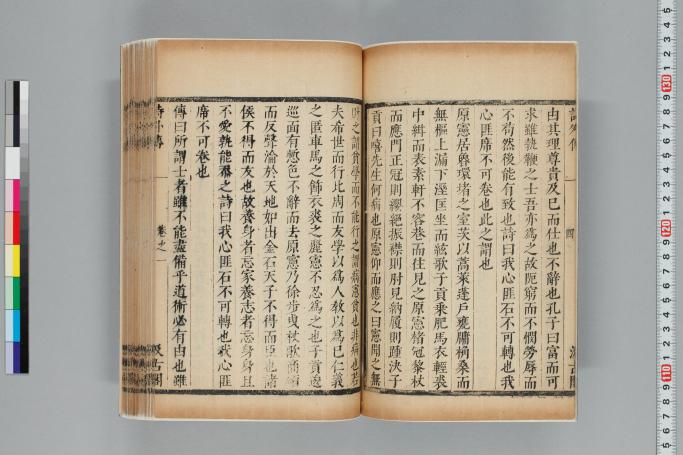 詩外傳
四
由其理尊貴及已而仕也不辭也孔子曰富而可
求雖執鞭之士吾亦為之故阨窮而不憫勞辱而
不茍然後能有致也詩曰我心匪石不可轉也我
心匪席不可卷也此之謂也
原憲居魯環堵之室茨以蒿萊蓬戶甕牖桷桑而
無樞上漏下溼匡坐而絃歌子貢乘肥馬衣輕裘
中紺而表素軒不容巷而往見之原憲楮冠黎杖
而應門正冠則纓絕振襟則肘見納履則踵決子
貢曰嘻先生何病也原憲仰而應之曰憲聞之無
財之謂貧學而不能行之謂病憲貧也非病也若
夫希世而行比周而友學以為人教以為已仁義
之匿車馬之飾衣裘之麗憲不忍為之也子貢逡
巡面有慙色不辭而去原憲乃徐步曳杖歌商頌
而反聲淪於天地如出金石天子不得而臣也諸
侯不得而友也故養身者忘家養志者忘身身且
不愛孰能忝之詩曰我心匪石不可轉也我心匪
席不可卷也
傳曰所謂士者雖不能盡備乎道術必有由也雖
詩外傳
卷之一
汲古閣